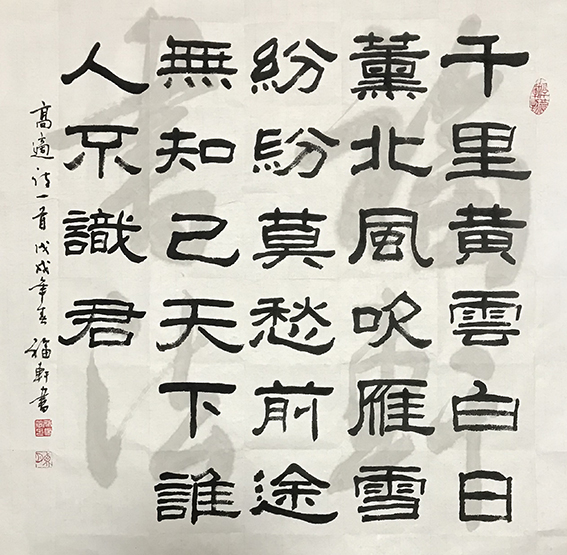 千里黄雲白日
薰北風吹雁雪
紛紛莫愁前途
無知己天下誰
人不識君
高適诗一首戊戌年 福軒書
福軒
書法